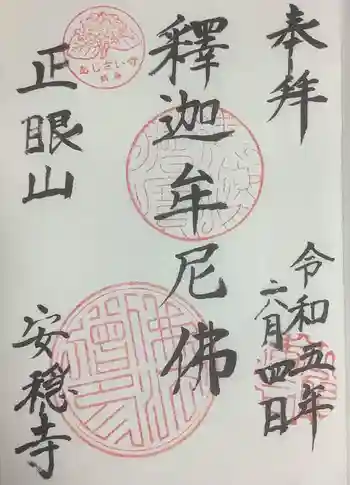 奉拝
令和五年
六月四日
釋迦牟尼佛
あじさい寺
正眼山
安穏寺